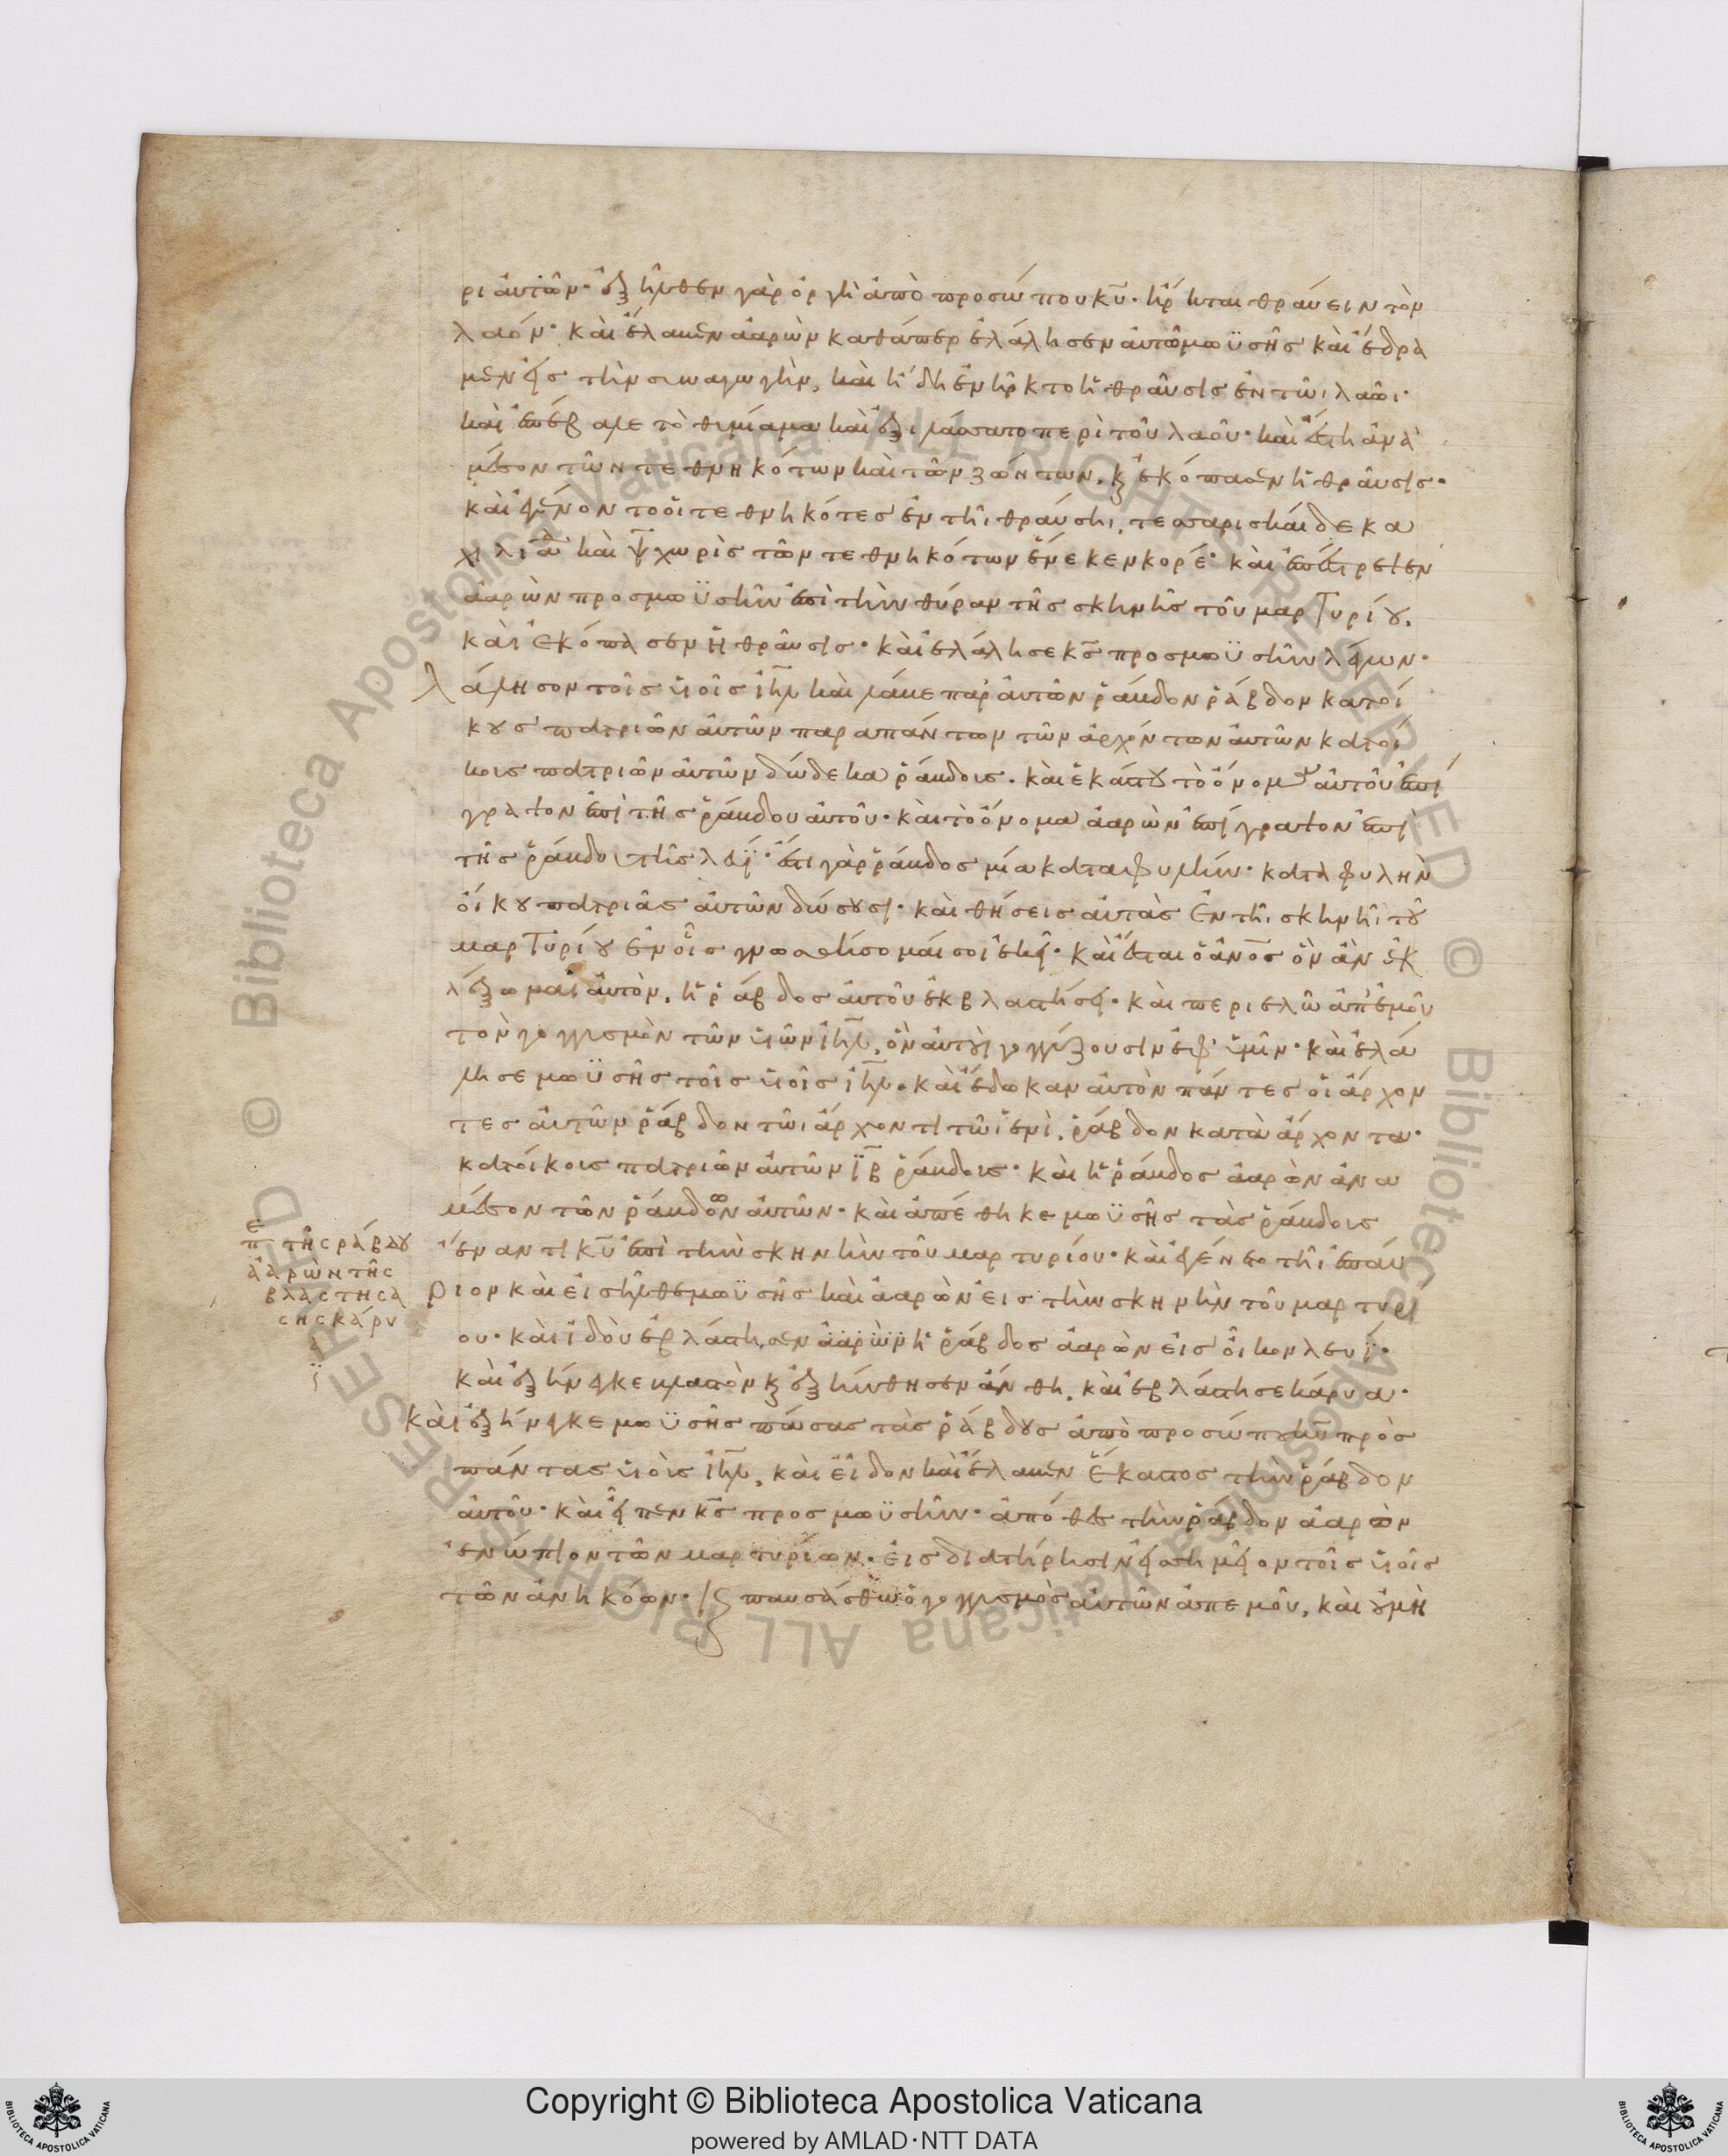 ρι αὐτῶν· ἐξῆλθεν γὰρ ὀργὴ ἀπὸ προσώπου κ̅υ̅· ἦρκται θραύειν τὸν
λαόν· καὶ ἔλαβεν ἀαρὼν καθάπερ ἐλάλησεν αὐτῶ μωϋσῆς καὶ ἔδρα
μεν εἰς τὴν συναγωγὴν, καὶ ἤδη ἐνῆρκτο ἡ θραῦσις ἐν τῶι λαῶι·
καὶ ἐπέβαλε τὸ θυμίαμα καὶ ἐξιλάσατο περὶ τοῦ λαοῦ· καὶ ἔστη ἀνὰ
μέσον τῶν τεθνηκότων καὶ τῶν ζώντων. κ ἐκόπασεν ἡ θραῦσις·
καὶ ἐγένοντο οἱ τεθνηκότες ἐν τῆι θραύσηι, τεσσαρισκαίδεκα
χιλιάδ καὶ ψ̅ χωρὶς τῶν τεθνηκότων ἕνεκεν κορέ· καὶ ἐπέστρεψεν
ἀαρὼν προς μωϋσῆν ἐπὶ τὴν θύραν τῆς σκηνῆς τοῦ μαρτυρίου.
καὶ ἐκόπασεν ἡ θραῦσις· καὶ ἐλάλησε κ̅ς̅ προς μωϋσῆν λέγων·
λάλησον τοῖς υἱοῖς ι̅η̅λ̅ καὶ λάβε παρ' αὐτῶν ῥάβδον ῥάβδον κατοί
κους πατριῶν αὐτῶν παρα πάντων τῶν ἀρχόντων αὐτῶν κατοί
κους πατριῶν αὐτῶν δώδεκα ῥάβδους. καὶ ἑκάστου τὸ ὄνομα αὐτοῦ ἐπί
γραψον ἐπὶ τῆς ῥάβδου αὐτοῦ· καὶ τὸ ὄνομα ἀαρὼν ἐπίγραψον ἐπὶ
τῆς ῥάβδου τῆς λευΐ· ἔστι γὰρ ῥάβδος μία κατα φυλήν· κατὰ φυλὴν
οἴκου πατριᾶς αὐτῶν δώσουσι· καὶ θήσεις αὐτὰς ἐν τῆι σκηνῆι τοῦ
μαρτυρίου ἐν οἷς γνωσθήσομαί σοι ἐκεῖ· καὶ ἔσται ὁ ἄν̅ο̅ς̅ ὃν ἂν ἐκ
λέξωμαι αὐτὸν, ἡ ῥάβδος αὐτοῦ ἐκβλαστήσει· καὶ περιελῶ ἀπ' ἐμοῦ
τὸν γογγυσμὸν τῶν υἱῶν ι̅η̅λ̅, ὃν αὐτοὶ γογγύζουσιν ἐφ' ὑμῖν· καὶ ἐλά
λησε μωϋσῆς τοῖς υἱοῖς ι̅η̅λ̅. καὶ ἔδωκαν αὐτὸν πάντες οἱ ἄρχον
τες αὐτῶν ῥάβδον τῶι ἄρχοντι τῶι ἑνὶ, ῥάβδον κατὰ ἄρχοντα·
κατοίκους πατριῶν αὐτῶν ι̅β̅ ῥάβδους· καὶ ἡ ῥάβδος ἀαρὼν ἀνα
μέσον τῶν ῥάβδων αὐτῶν· καὶ ἀπέθηκε μωϋσῆς τὰς ῥάβδους
ἔναντι κ̅υ̅ ἐπὶ τὴν σκηνὴν τοῦ μαρτυρίου· καὶ ἐγένετο τῆι ἐπαύ
ριον καὶ εἰσῆλθε μωϋσῆς καὶ ἀαρὼν εἰς τὴν σκηνὴν τοῦ μαρτυρί
ου· καὶ ἰδοὺ ἐβλάστησεν ἀαρὼν ἡ ῥάβδος ἀαρὼν εἰς οἶκον λευΐ·
καὶ ἐξήνεγκε βλαστὸν κ ἐξήνθησεν ἄνθη, καὶ ἐβλάστησε κάρυα·
καὶ ἐξήνεγκε μωϋσῆς πάσας τὰς ῥάβδους ἀπὸ προσώπου κ̅υ̅ πρὸς
πάντας υἱοὺς ι̅η̅λ̅, καὶ εἶδον καὶ ἔλαβεν ἕκαστος τὴν ῥάβδον
αὐτοῦ· καὶ εἶπεν κ̅ς̅ προς μωϋσῆν· ἀπόθες τὴν ῥάβδον ἀαρὼν
ἐνώπιον τῶν μαρτυρίων. εἰς διατήρησιν σημεῖον τοῖς υἱοῖς
τῶν ἀνηκόων· κ παυσάσθω ὁ γογγυσμὸς αὐτῶν ἀπ' ἐμοῦ, καὶ οὐ μὴ
πε τῆς ράβδου
ἀαρὼν τῆς
βλαστησα
σης κάρυ